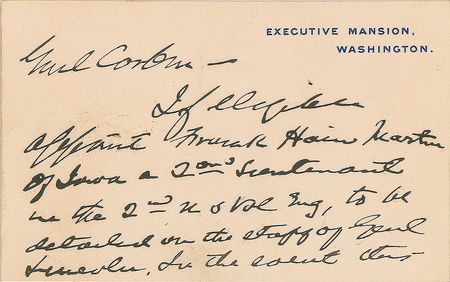 EXECUTIVE MANSION,
WASHINGTON.
Genl Corbin —
If eligible
appoint Frank Hain Martin
of Iowa a 2nd Lieutenant
in the 2nd U S Vol Eng, to be
detailed on the staff of Genl
Lincoln. In the event this